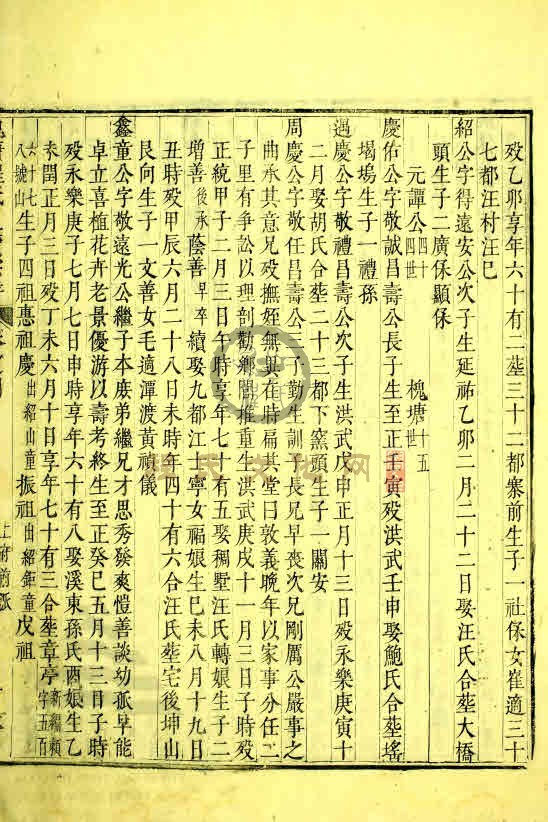 歿乙卯享年六十有二塟三十二都寨前生子一社保女崔適三十
七都汪村汪巳
紹公字得遠安公次子生延祐乙卯二月二十二日娶汪氏合塟大橋
頭生子二廣保顯保
元譚公四十四世 槐塘十五世
慶佑公字敬誠昌壽公長子生至正壬寅歿洪武壬申娶鮑氏合塟瑤
堨塢生子一禮孫
遇慶公字敬禮昌壽公次子生洪武戊申正月十三日歿永樂庚寅十
二月娶胡氏合塟二十三都下窯頭生子一關安
周慶公字敬任昌壽公三 勤生訓子長兄早喪次兄剛厲公嚴事之
曲承其意兄歿撫姪無異在時扁其堂曰敦義晚年以家事分任二
子里有爭訟以理剖勸鄉閭推重生洪武庚戌十一月三日子時歿
正統甲子二月三日午時享年七十有五娶稠墅汪氏轉娘生子二
增善後承蔭善早卒續娶九都江士寧女福娘生巳未八月十九日
丑時歿甲辰六月二十八日未時年四十有六合汪氏塟宅後坤山
艮向生子一文善女毛適潭渡黃禎儀
鑫童公字敬遠光公繼子本庻弟繼兄才思秀發爽愷善談幼孤早能
卓立喜植花卉老景優游以壽考終生至正癸巳五月十三日子時
歿永樂庚子七月七日申時享年六十有八娶溪東孫氏酉娘生乙
未閏正月三日歿丁未六月十日享年七十有三合塟章亭新編賴字五百
六十七八號山生子四祖惠祖慶出紹山童振祖出紹鉅童戊祖